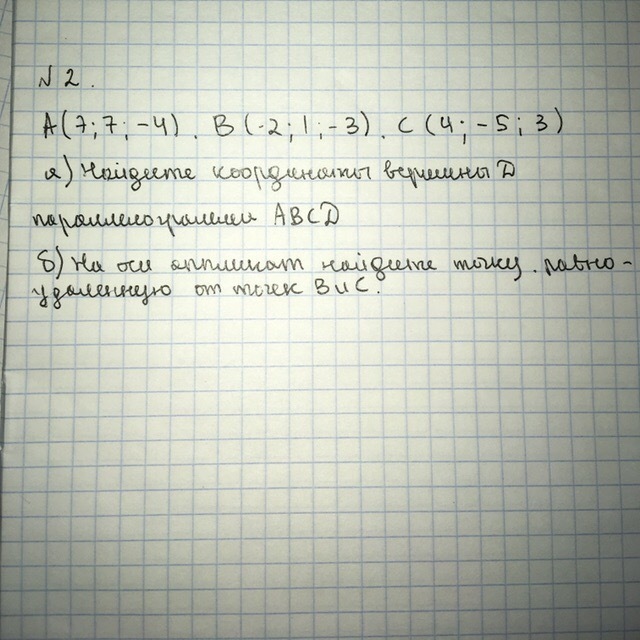 N 2.
A(7; 7; -4). B(-2; 1; -3). C(4; -5; 3)
а) Найдите координаты вершины D
параллелограмма ABCD
б) На оси аппликат найдите точку равно-
удаленную от точек B и C.